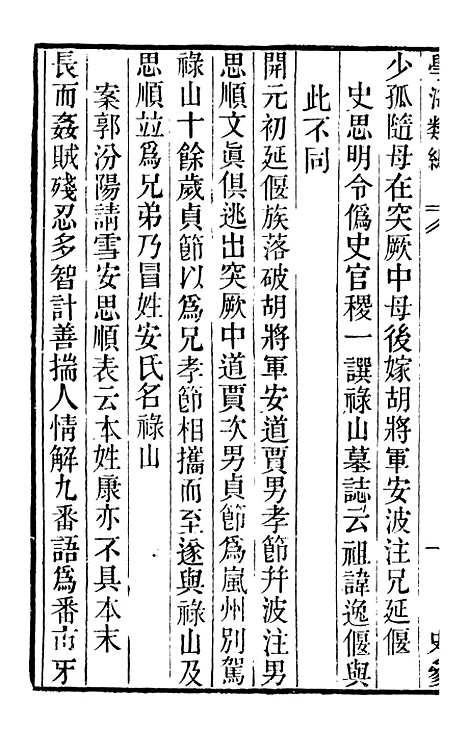 學海類編
少孤隨母在突厥中母後嫁胡將軍安波注兄延偃
史思明令僞史官稷一譔祿山墓誌云祖諱逸偃與
此不同
開元初延偃族落破胡將軍安道賈男孝節幷波注男
思順文貞俱逃出突厥中道賈次男貞節爲嵐州別駕
祿山十餘歲貞節以爲兄孝節相攜而至遂與祿山及
思順並爲兄弟乃冒姓安氏名祿山
案郭汾陽請雪安思順表云本姓康亦不具本末
長而姦賊殘忍多智計善揣人情解九番語爲番市牙